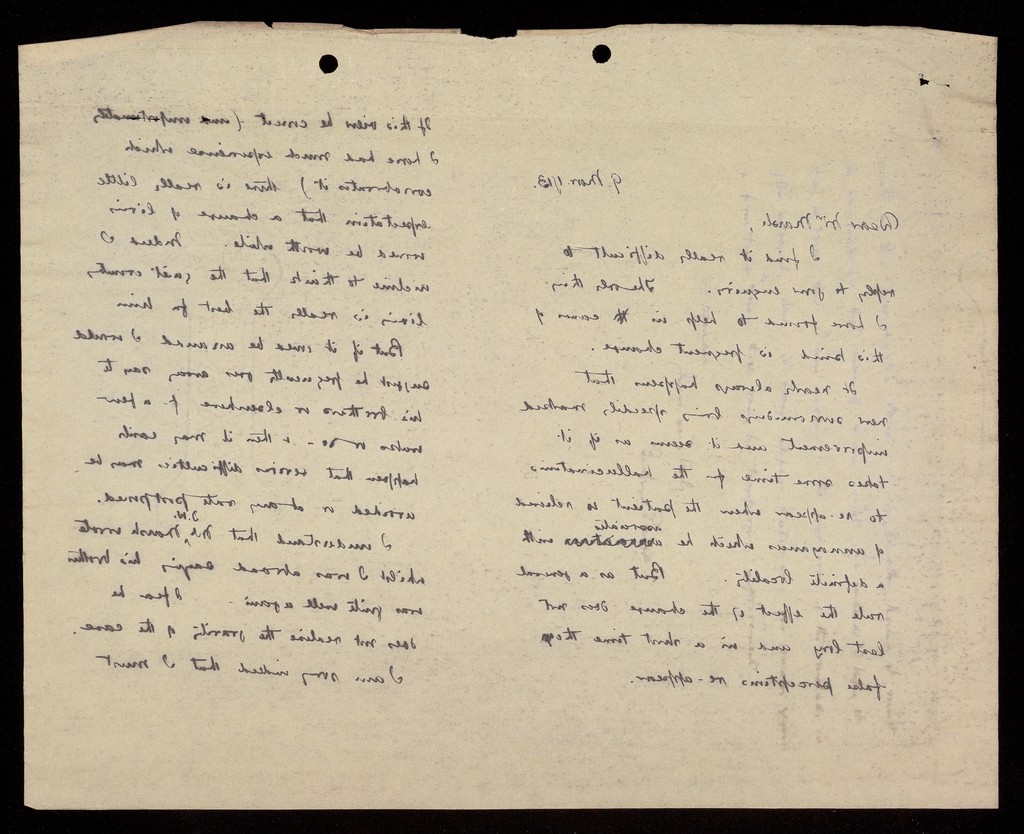 9. Nov. 1913.
Dear Mr. Marsh,
I find it really difficult to
reply to your enquiry. The only thing
I have found to help in the cases of
this kind is frequent change.
It nearly always happens that
new surroundings bring speedily marked
improvement and it seems as if it
takes some time for the hallucinations
to re-appear when the patient is relieved
of annoyances which he associates with
a definite locality. But as a general
rule the effect of the change does not
last long and in a short time the
false perceptions re-appear.
If this view be correct (and unfortunately
I have had much experience which
corroborates it) there is really little
expectation that a change of living
would be worth while. Indeed I
incline to think that the quiet country
living is really the best for him
But if it could be arranged I would
suggest he frequently goes away, say to
his brothers or elsewhere for a few
weeks or so - & then it may easily
happen that serious difficulties may be
avoided or at any rate postponed.
I understand that Mr J.N. Marsh wrote
whilst I was abroad saying his brother
was quite well again - I fear he
does not realise the gravity of the case.
I am sorry indeed that I must